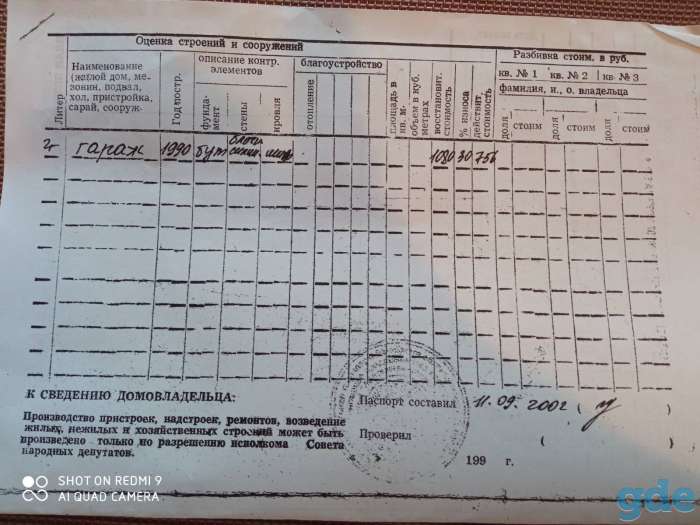 Оценка строений и сооружений
Разбивка стоим. в руб.
Литер
Наименование
(жилой дом, ме-
зонин, подвал,
хол. пристройка,
сарай, сооруж.
Год постр.
описание контр.
элементов
фунда-
мент
стены
кровля
благоустройство
отопление
площадь в
кв. м.
объем в куб.
метрах
восстановит.
стоимость
% износа
действит.
стоимость
кв. № 1 кв. № 2 кв. № 3
фамилия, и., о. владельца
доля стоим доля стоим доля стоим
гараж 1990 бут блоки 1080 30 756
К СВЕДЕНИЮ ДОМОВЛАДЕЛЬЦА:
Производство пристроек, надстроек, ремонтов, возведение
жилых, нежилых и хозяйственных строений может быть
произведено только по разрешению исполкома Совета
народных депутатов.
Паспорт составил 11.09.2002 ( )
Проверил ( )
199 г.
SHOT ON REDMI 9
AI QUAD CAMERA
gde